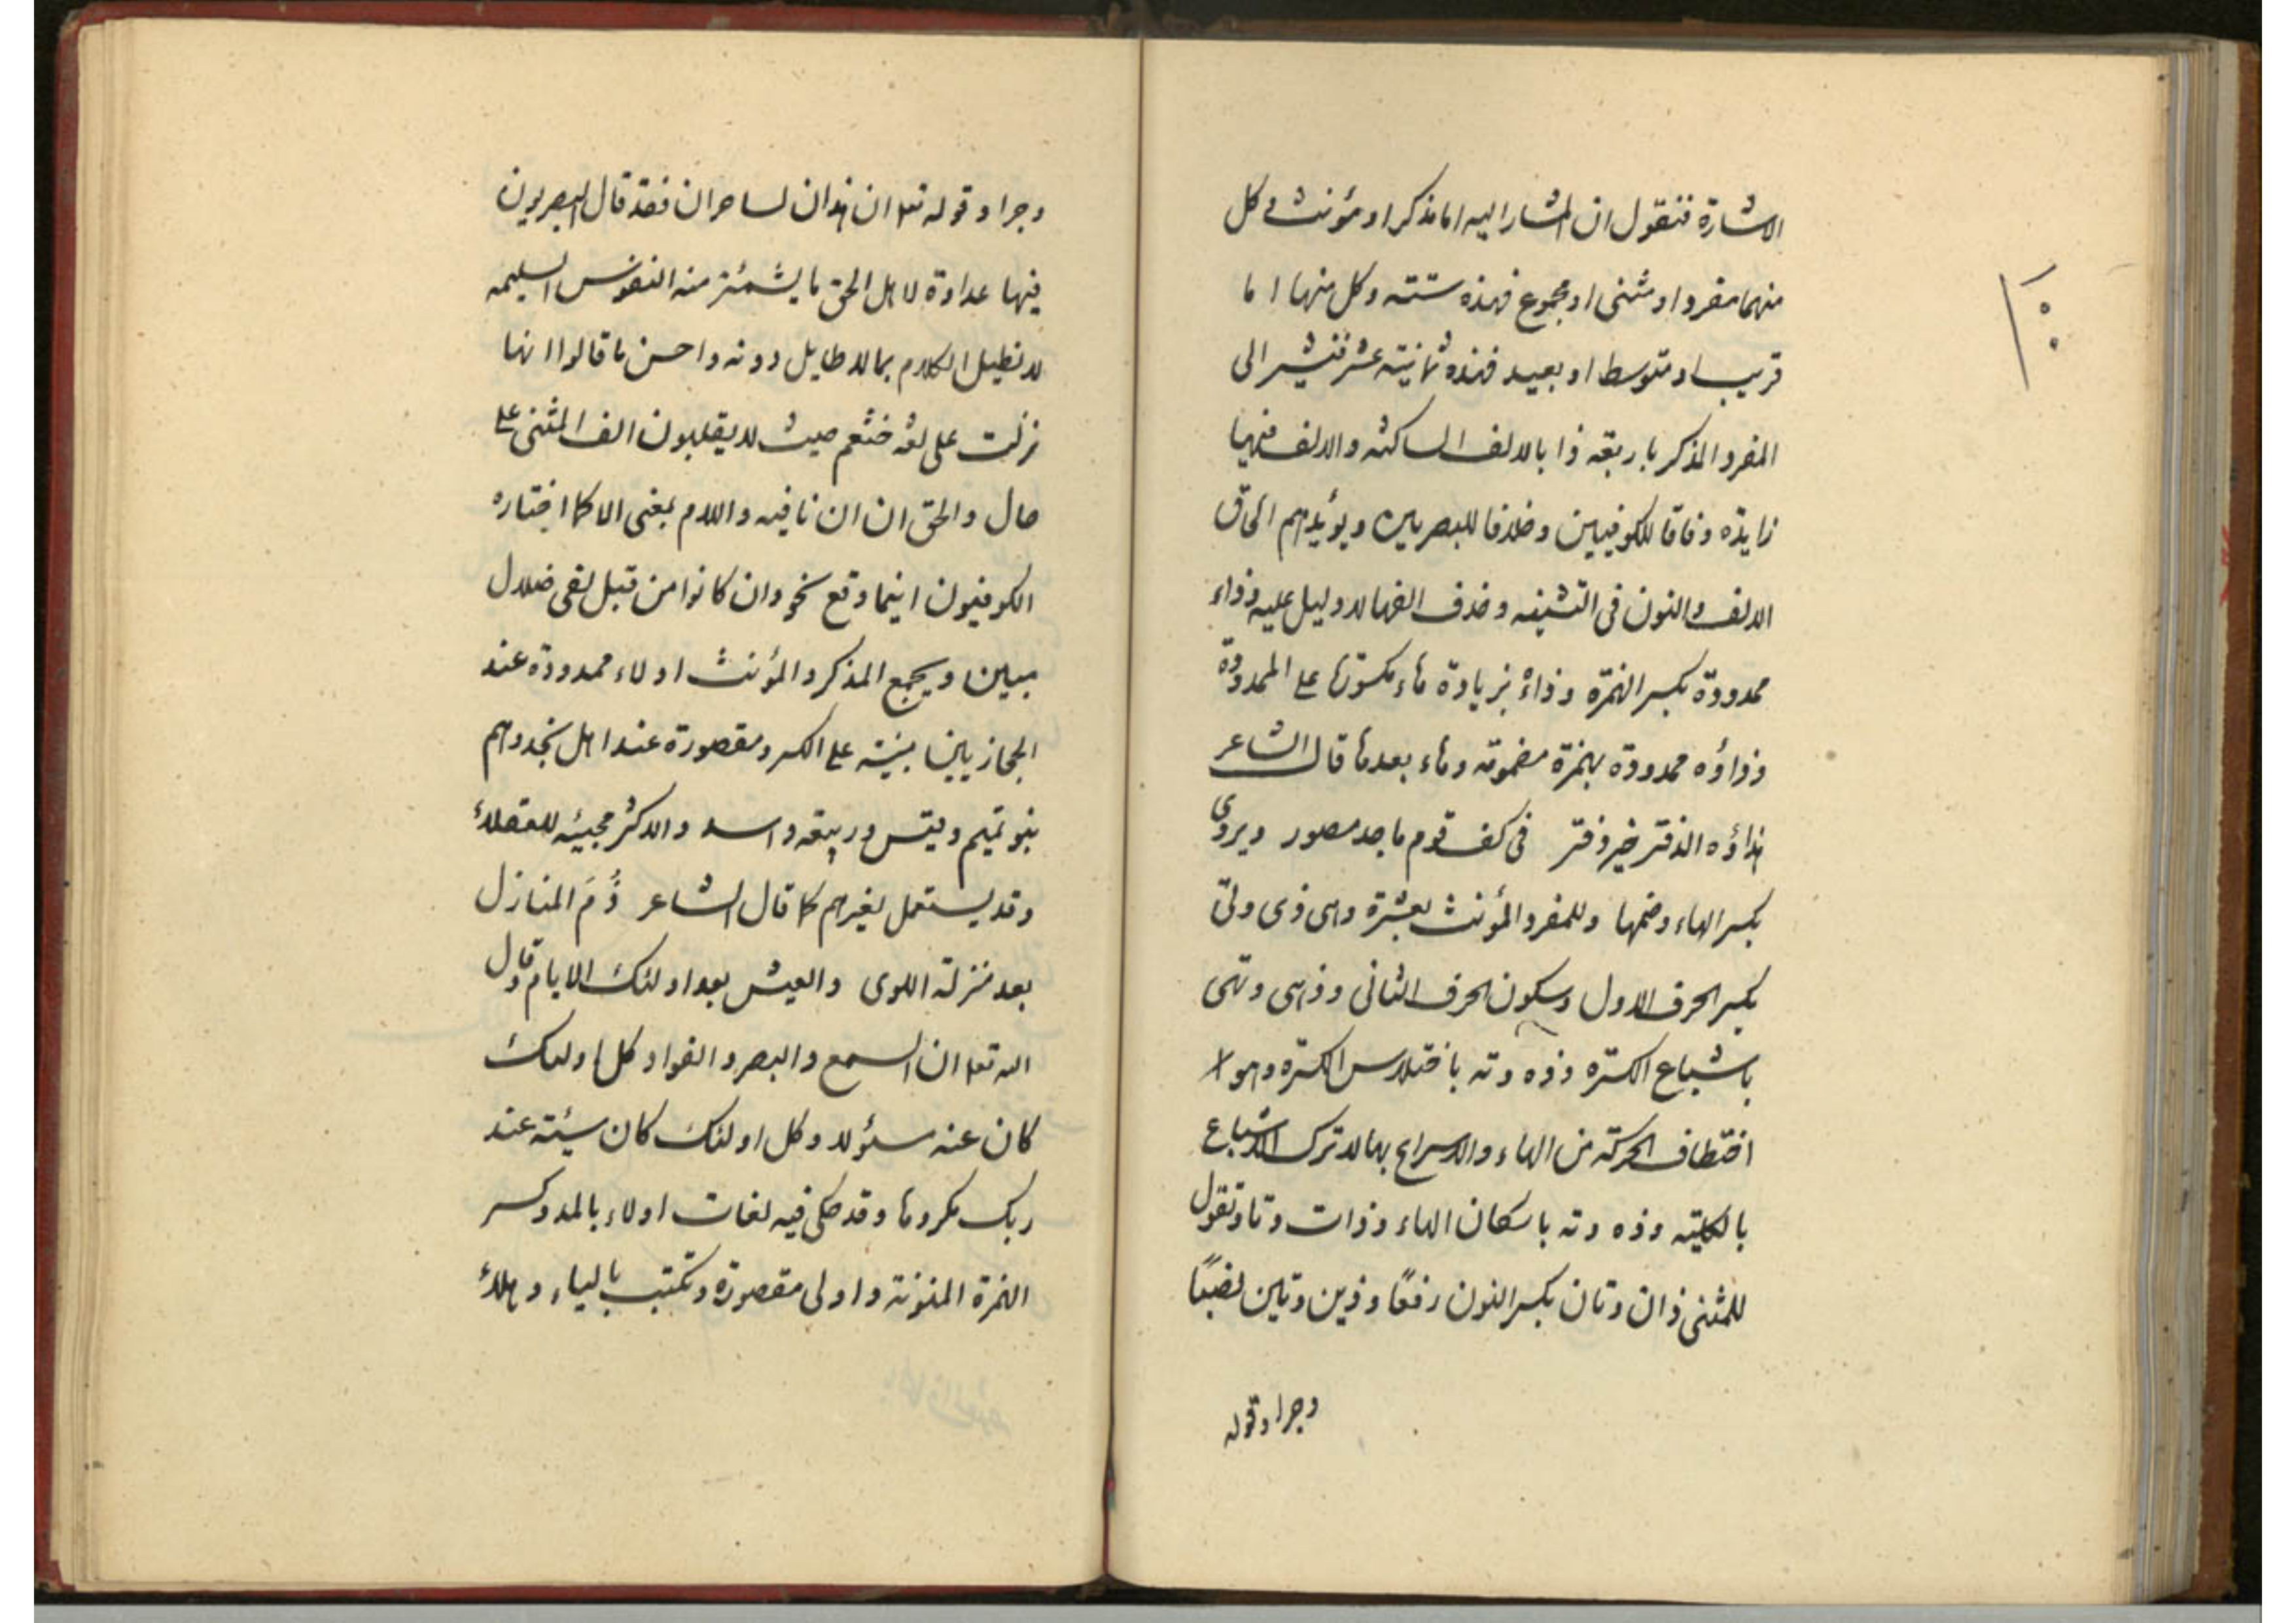 الاشارة فنقول ان المشار اليه اما مذكر او مؤنث و كل
منهما مفرد او مثنى او مجموع فهذه ستته و كل منها اما
قريب او متوسط او بعيد فهذه ثمانيته عشر فنشير الى
المفرد المذكر باربعه ذا بالالف الساكنه والالف فيها
زايده وفاقا للكوفيين وخلافا للبصريين و يؤيدهم الحاق
الالف والنون فى التثنيه وحذف الفها لا دليل عليه وذاء
ممدودة بكسر الهمزه وذائه بزيادة هاء مكسورتها على الممدودة
وذاؤه ممدودة بهمزة مضمومته وهاء بعدها قال الشاعر
هذاؤه الدفتر خير دفتر فى كف قوم ماجد مصور ويروى
بكسر الهاء وضمها وللمفرد المؤنث بعشرة وهى ذى وتى
بكسر الحرف الاول وسكون الحرف الثانى وذهى وتهى
باشباع الكسره وذه وته باختلاس الكسره وهو
اختطاف الحركته من الهاء والاسراع بها لا ترك الاشباع
بالكليته وذه وته باسكان الهاء وذات وتا وتقول
للمثنى ذان وتان بكسر النون رفعًا وذين وتين نصبًا
وجرا وقوله
١٠
وجرا وقوله تعا ان هذان لساحران فقد قال البصريون
فيها عداوة لاهل الحق ما يشمئز منه النفوس السليمه
لا نطيل الكلام بما لا طايل دونه واحسن ما قالوا انها
نزلت على لغه خثعم حيث لا يقلبون الف المثنى على
حال والحق ان ان نافيه واللام بمعنى الا كما اختاره
الكوفيون اينما وقع نحو وان كانوا من قبل لفى ضلال
مبين ويجمع المذكر والمؤنث اولاء ممدودة عند
الحجازيين مبنيته على الكسر ومقصورة عند اهل نجد وهم
بنو تميم وقيس وربيعه واسد والاكثر مجيئه للعقلاء
وقد يستعمل لغيرهم كما قال الشاعر ذُمَ المنازل
بعد منزلة اللوى والعيش بعد اولئك الايام وقال
الله تعا ان السمع والبصر والفواد كل اولئك
كان عنه مسئولا وكل اولئك كان سيئته عند
ربك مكروها وقد حكى فيه لغات اولاء بالمد وكسر
الهمزة المنونة واولى مقصورة وتكتب بالياء وهلاء